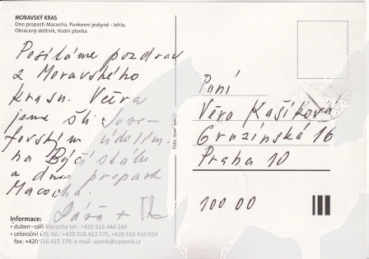 MORAVSKÝ KRAS
Dno propasti Macocha, Punkevní jeskyně - Jehla,
Obrácený deštník, Vodní plavba
Posíláme pozdrav
z Moravského
krasu. Včera
jsme šli Josefovským údolím
na Býčí skálu
a dnes propast
Macocha.
Paní
Věra Kašíková
Gruzínská 16
Praha 10
100 00
Informace:
• duben–září Macocha tel.: +420 516 444 260
• celoročně tel.: +420 516 413 575, +420 516 410 024
fax: +420 516 415 379, e-mail: